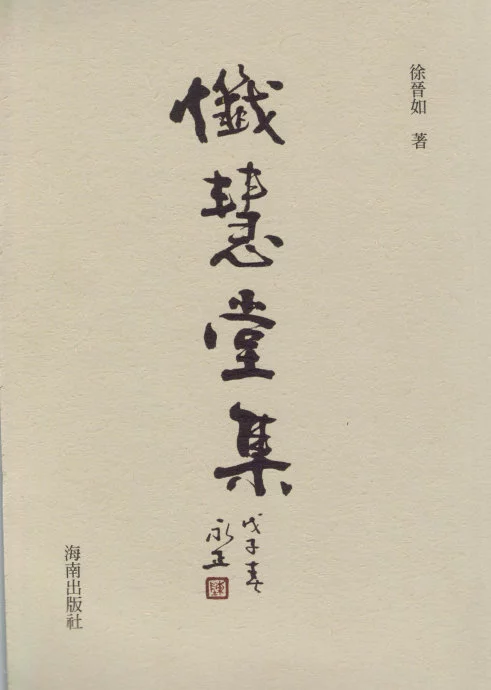 徐晉如 著
懺慧堂集
戊子春
永正
陳
海南出版社